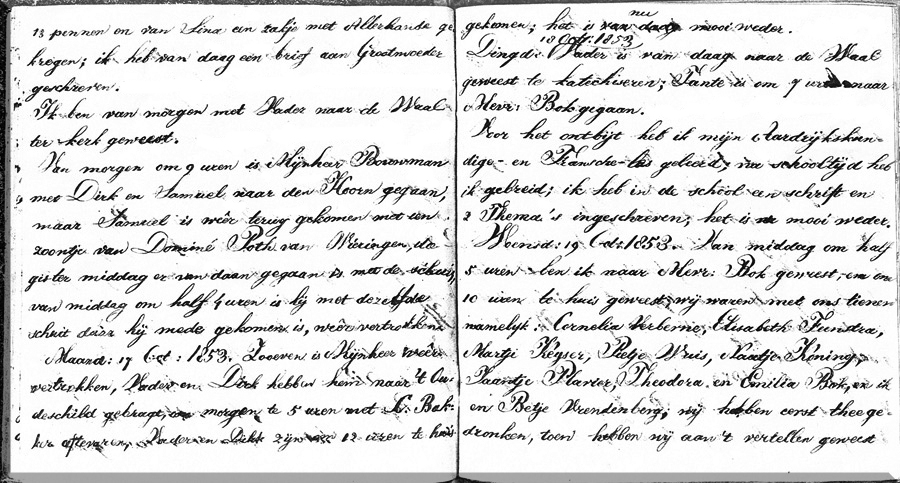 13 pennen en van Lina een zakje met Allerhande ge
kregen; ik heb van daag een brief aan Grootmoeder
geschreven.
Ik ben van morgen met Vader naar de Waal
ter kerk geweest.
Van morgen om 9 uren is Mijnheer Bouwman
met Dirk en Samuel naar den Hoorn gegaan,
maar Samuel is weêr terug gekomen met een
zoontje van Dominé Poth van Wieringen, die
gister middag er van daan gegaan is met de schuit,
van middag om half 4 uren is hij met dezelfde
schuit daar hij mede gekomen is, weêr vertrokken.
Maand: 17 Oct: 1853. Zooeven is Mijnheer weêr
vertrokken, Vader en Dirk hebben hem naar 't Ou-
deschild gebragt, morgen te 5 uren met C. Bak-
ker afvaren, Vader en Dirk zijn om 12 uren te huis
gekomen; het is van daag nu mooi weder.
18 Oct: 1853
Dingd: Vader is van daag naar de Waal
geweest te katechiseren; Tante is om 7 uren naar
Mevr: Bok gegaan.
Voor het ontbijt heb ik mijn Aardrijkskun-
dige- en Fransche les geleerd, na schooltijd heb
ik gebreid; ik heb in de school een schrift en
2 Thema's ingeschreven; het is mooi weder.
Woensd: 19 Oct: 1853. Van middag om half
5 uren ben ik naar Mevr: Bok geweest, en om
10 uren te huis geweest, wij waren met ons tienen
namelyk: Cornelia Verberne, Elisabeth Feenstra,
Martje Keyser, Pietje Wuis, Naatje Koning,
Jaantje Plavier, Theodora en Emilia Bok, en ik
en Betje Vrendenberg; wij hebben eerst thee ge-
dronken, toen hebben wij aan't vertellen geweest